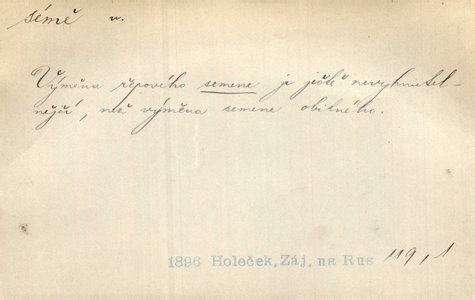 sémě n.
Výměna řepového semene je ještě nevyhnutel-
nější, než výměna semene obilného.
1896 Holeček, Záj. na Rus 119, 1